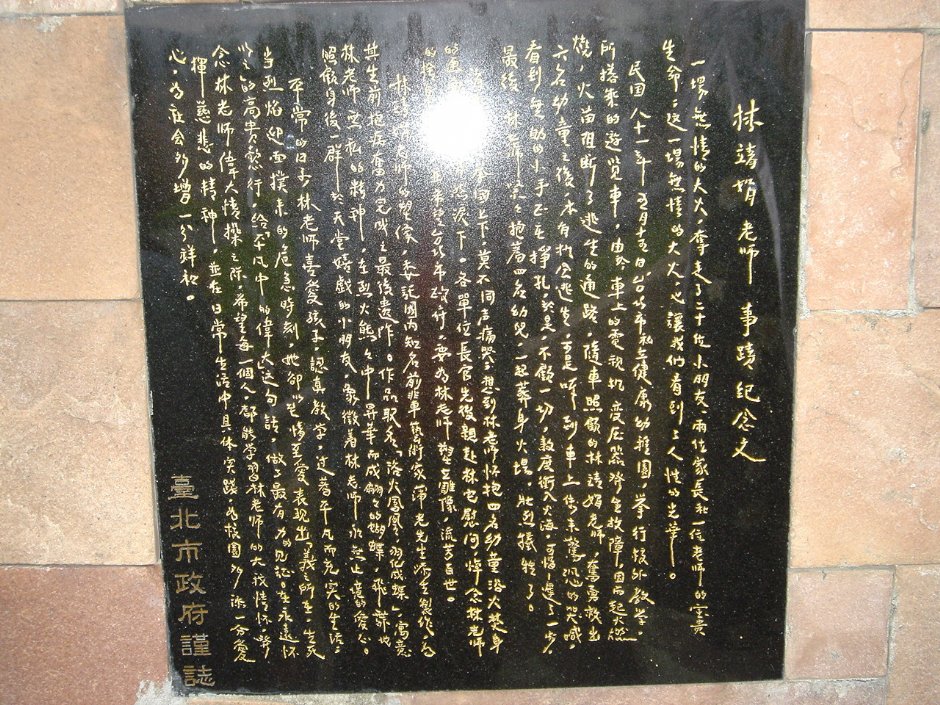 林靖娟老師 事蹟紀念文
一場無情的大火，奪走了二十位小朋友、兩位家長和一位老師的寶貴
生命，這一場無情的大火，也讓我們看到了人性的光華。
民國八十一年五月十五日，台北市私立健康幼稚園，舉行校外教學，
所搭乘的遊覽車，由於車上的電視機，變壓器發生故障，因而起火燃
燒，火苗阻斷了逃生的通路，隨車照顧的林靖娟老師，奮勇救出
六名幼童之後，本有機會逃生，可是聽到車上傳來驚恐的哭喊，
看到無助的小手正在掙扎，於是，不顧一切，數度衝入火海，可惜！遲了一步
最後，林老師緊緊抱著四名幼兒，一起葬身火場，壯烈犧牲了。
全國上下，莫不同聲痛哭，想到林老師懷抱四名幼童浴火焚身
的 淚下。各單位長官先後親赴林宅慰問，悼念林老師
的 台北市政府，要為林老師塑立雕像，流芳百世。
林靖娟老師的塑像，委託國內知名前輩藝術家 先生 製作，為
其生前抱病奮力完成之最後遺作。作品取名「浴火鳳凰，羽化成蝶」，寓意
林老師無私的精神，在烈火熊熊中昇華而成 的蝴蝶，飛舞地
照顧身後一群於天堂嬉戲的小朋友，象徵著林老師永無止境的愛心。
平常的日子林老師喜愛孩子、認真教學，過著平凡而充實的生活，
當烈焰迎面撲來的危急時刻，她卻以至情至愛表現出，義之所至，生死
以之的高貴懿行，給平凡中的偉大這句話，做了最有力的見證。在永遠懷
念林老師偉大情操之際，希望每一個人，都能學習林老師的大我情懷，發
揮慈悲的精神，並在日常生活中具体實踐，為校園多添一分愛
心，為社會多增一分祥和。
臺北市政府謹誌